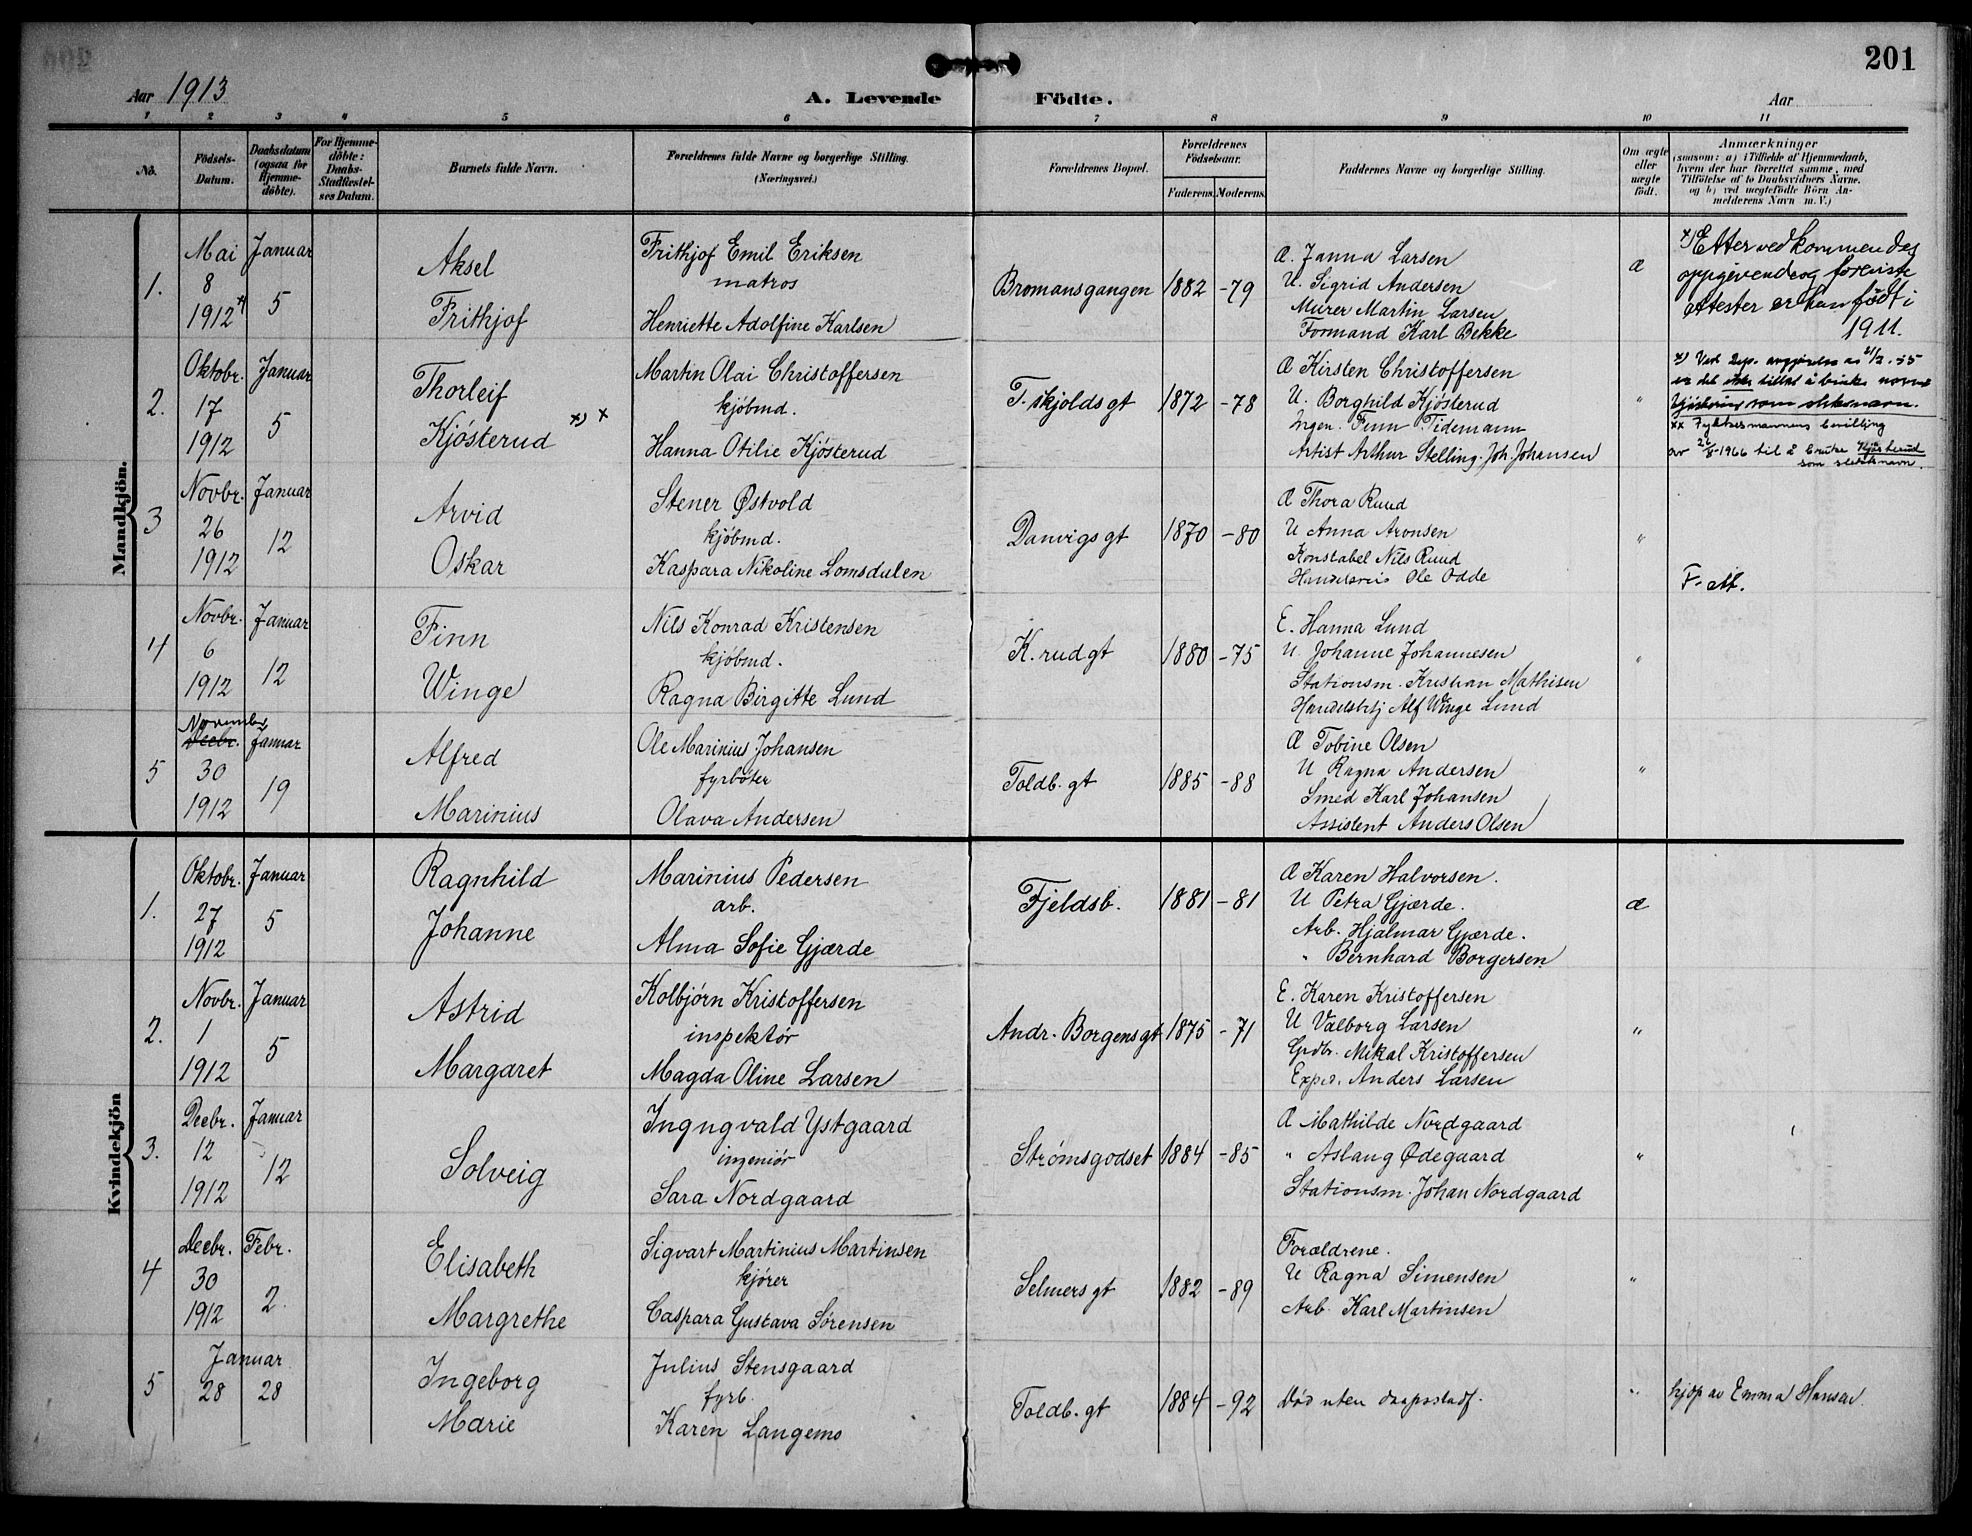 201
Aar 1913
A. Levende Födte.
Aar
1 2 3 4 5 6 7 8 9 10 11
No.
Födsels-Datum.
Daabsdatum (ogsaa for Hjemme-döbte).
For Hjemme-döbte: Daabs-Stadfæstel-ses Datum.
Barnets fulde Navn.
Forældrenes fulde Navne og borgerlige Stilling. (Næringsvei.)
Forældrenes Bopæl.
Forældrenes Födselsaar.
Faderens. Moderens.
Faddernes Navne og borgerlige Stilling.
Om ægte eller uægte födt.
Anmærkninger
(saasom: a) i Tilfælde af Hjemmedaab,
hvem der har forrettet samme, med
Tilföielse af to Daabsvidners Navne.
og b) ved uægtefödte Börn An-
melderens Navn m. V.)
Mandkjön.
1.
Mai
8
1912 x)
Januar
5
Aksel
Frithjof
Frithjof Emil Eriksen
matros
Henriette Adolfine Karlsen
Bromansgangen
1882
-79
Æ. Janna Larsen
U. Sigrid Andersen
Murer Martin Larsen
Formand Karl Bekke
æ
x) Etter vedkommendes
oppgivende og foreviste
attester er han født i
1911.
2.
Oktobr.
17
1912
Januar
5
Thorleif
Kjøsterud x) x
Martin Olai Christoffersen
kjøbmd.
Hanna Otilie Kjøsterud
T. skjolds gt
1872
-78
Æ Kirsten Christoffersen
U. Borghild Kjøsterud
Ingen. Finn Tidemann
Artist Arthur Stelling. Joh. Johansen
"
x) Ved Dep. avgjørelse av
er det tillat å bruke navnet
Kjøsterud som slektsnavn.
xx Fylkesmannens bevilling
av 26/8-1966 til å bruke Kjøsterud
som slektsnavn.
3
Novbr.
26
1912
Januar
12
Arvid
Oskar
Stener Østvold
kjøbmd.
Kaspara Nikoline Lomsdalen
Danvigs gt
1870
-80
Æ Thora Ruud
U Anna Aronsen
Konstabel Nils Ruud
Ole Odde
"
F. att.
4
Novbr.
6
1912
Januar
12
Finn
Winge
Nils Konrad Kristensen
kjøbmd.
Ragna Birgitte Lund
K. rud gt
1880
-75
E. Hanna Lund
U. Johanne Johannesen
Stationsm. Kristian Mathisen
Handelsbetj Alf Winge Lund
"
5
November
Decbr.
30
1912
Januar
19
Alfred
Marinius
Ole Marinius Johansen
fyrbøter
Olava Andersen
Toldb. gt
1885
-88
Æ Tobine Olsen
U Ragna Andersen
Smed Karl Johansen
Assistent Anders Olsen
"
Kvindekjön
1.
Oktobr.
27
1912
Januar
5
Ragnhild
Johanne
Marinius Pedersen
arb.
Alma Sofie Gjærde
Fjeldsb.
1881
-81
Æ Karen Halvorsen.
U Petra Gjærde.
Arb. Hjalmar Gjærde.
" Bernhard Borgersen
æ
2.
Novbr.
1
1912
Januar
5
Astrid
Margaret
Kolbjørn Kristoffersen
inspektør
Magda Oline Larsen
Andr. Borgens gt
1875
-71
E. Karen Kristoffersen
U Valborg Larsen
Grdbr. Mikal Kristoffersen
Exped. Anders Larsen
"
3.
Decbr.
12
1912
Januar
12
Solveig
Ingngvald Ystgaard
ingeniør
Sara Nordgaard
Strømsgodset
1884
-85
Æ Mathilde Nordgaard
" Aslaug Ødegaard
Stationsm. Johan Nordgaard
"
4
Decbr.
30
1912
Febr.
2.
Elisabeth
Margrethe
Sigvart Martinius Martinsen
kjører
Caspara Gustava Sørensen
Selmers gt
1882
-89
Forældrene.
U Ragna Simensen
Arb. Karl Martinsen
"
5
Januar
28 28
Ingeborg
Marie
Julius Stensgaard
fyrb.
Karen Langemo
Toldb. gt
1884
-92
Død uten daapsstadf.
"
hjdp av Emma Hansen.